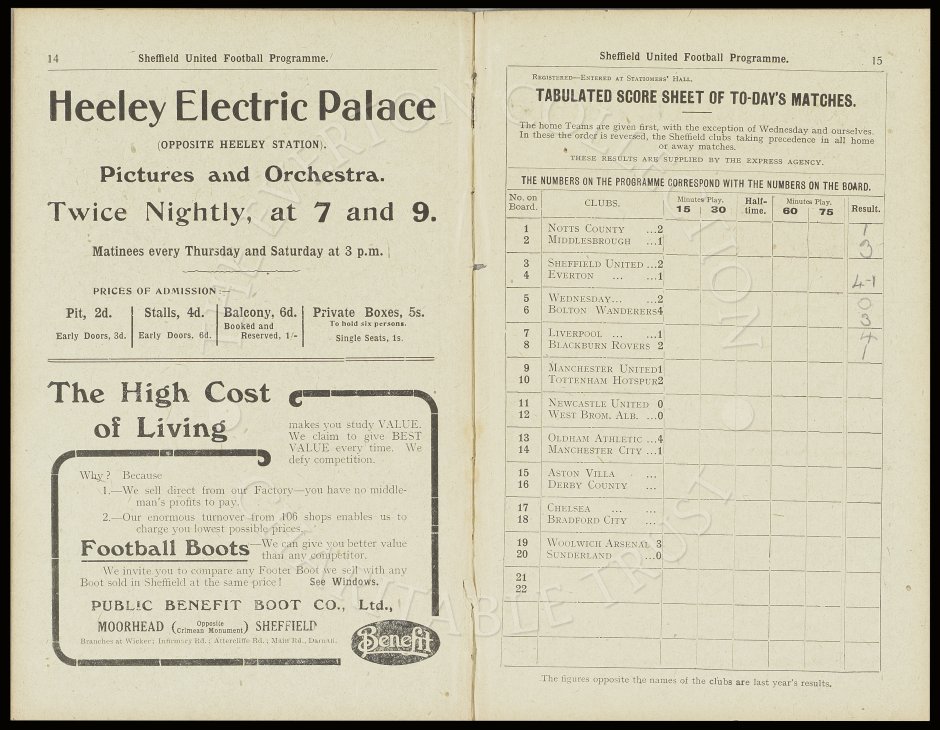 14 Sheffield United Football Programme.
Heeley Electric Palace
(OPPOSITE HEELEY STATION).
Pictures and Orchestra.
Twice Nightly, at 7 and 9.
Matinees every Thursday and Saturday at 3 p.m.
PRICES OF ADMISSION:—
Pit, 2d. Stalls, 4d. Balcony, 6d. Private Boxes, 5s.
Early Doors, 3d. Early Doors, 6d. Booked and Reserved, 1/- To hold six persons.
Single Seats, 1s.
The High Cost
of Living
makes you study VALUE.
We claim to give BEST
VALUE every time. We
defy competition.
Why? Because
1.—We sell direct from our Factory—you have no middle-
man's profits to pay.
2.—Our enormous turnover from 106 shops enables us to
charge you lowest possible prices.
Football Boots—We can give you better value
than any competitor.
We invite you to compare any Footer Boot we sell with any
Boot sold in Sheffield at the same price! See Windows.
PUBLIC BENEFIT BOOT CO., Ltd.,
MOORHEAD (Opposite Crimean Monument) SHEFFIELD
Branches at Wicker; Infirmary Rd.; Attercliffe Rd.; Main Rd., Darnall.
Benefit
Sheffield United Football Programme. 15
REGISTERED—ENTERED AT STATIONERS' HALL.
TABULATED SCORE SHEET OF TO-DAY'S MATCHES.
The home Teams are given first, with the exception of Wednesday and ourselves.
In these the order is reversed, the Sheffield clubs taking precedence in all home
or away matches.
THESE RESULTS ARE SUPPLIED BY THE EXPRESS AGENCY.
THE NUMBERS ON THE PROGRAMME CORRESPOND WITH THE NUMBERS ON THE BOARD.
No. on Board. CLUBS. Minutes Play. 15 30 Half-time. Minutes Play. 60 75 Result.
1 NOTTS COUNTY ...2 1
2 MIDDLESBROUGH ...1 3
3 SHEFFIELD UNITED ...2
4 EVERTON ... ...1 4-1
5 WEDNESDAY... ...2 0
6 BOLTON WANDERERS4 3
7 LIVERPOOL ... ...1 4
8 BLACKBURN ROVERS 2 1
9 MANCHESTER UNITED1
10 TOTTENHAM HOTSPUR2
11 NEWCASTLE UNITED 0
12 WEST BROM. ALB. ...0
13 OLDHAM ATHLETIC ...4
14 MANCHESTER CITY ...1
15 ASTON VILLA ...
16 DERBY COUNTY ...
17 CHELSEA ... ...
18 BRADFORD CITY ...
19 WOOLWICH ARSENAL 3
20 SUNDERLAND ...0
21
22
The figures opposite the names of the clubs are last year's results.